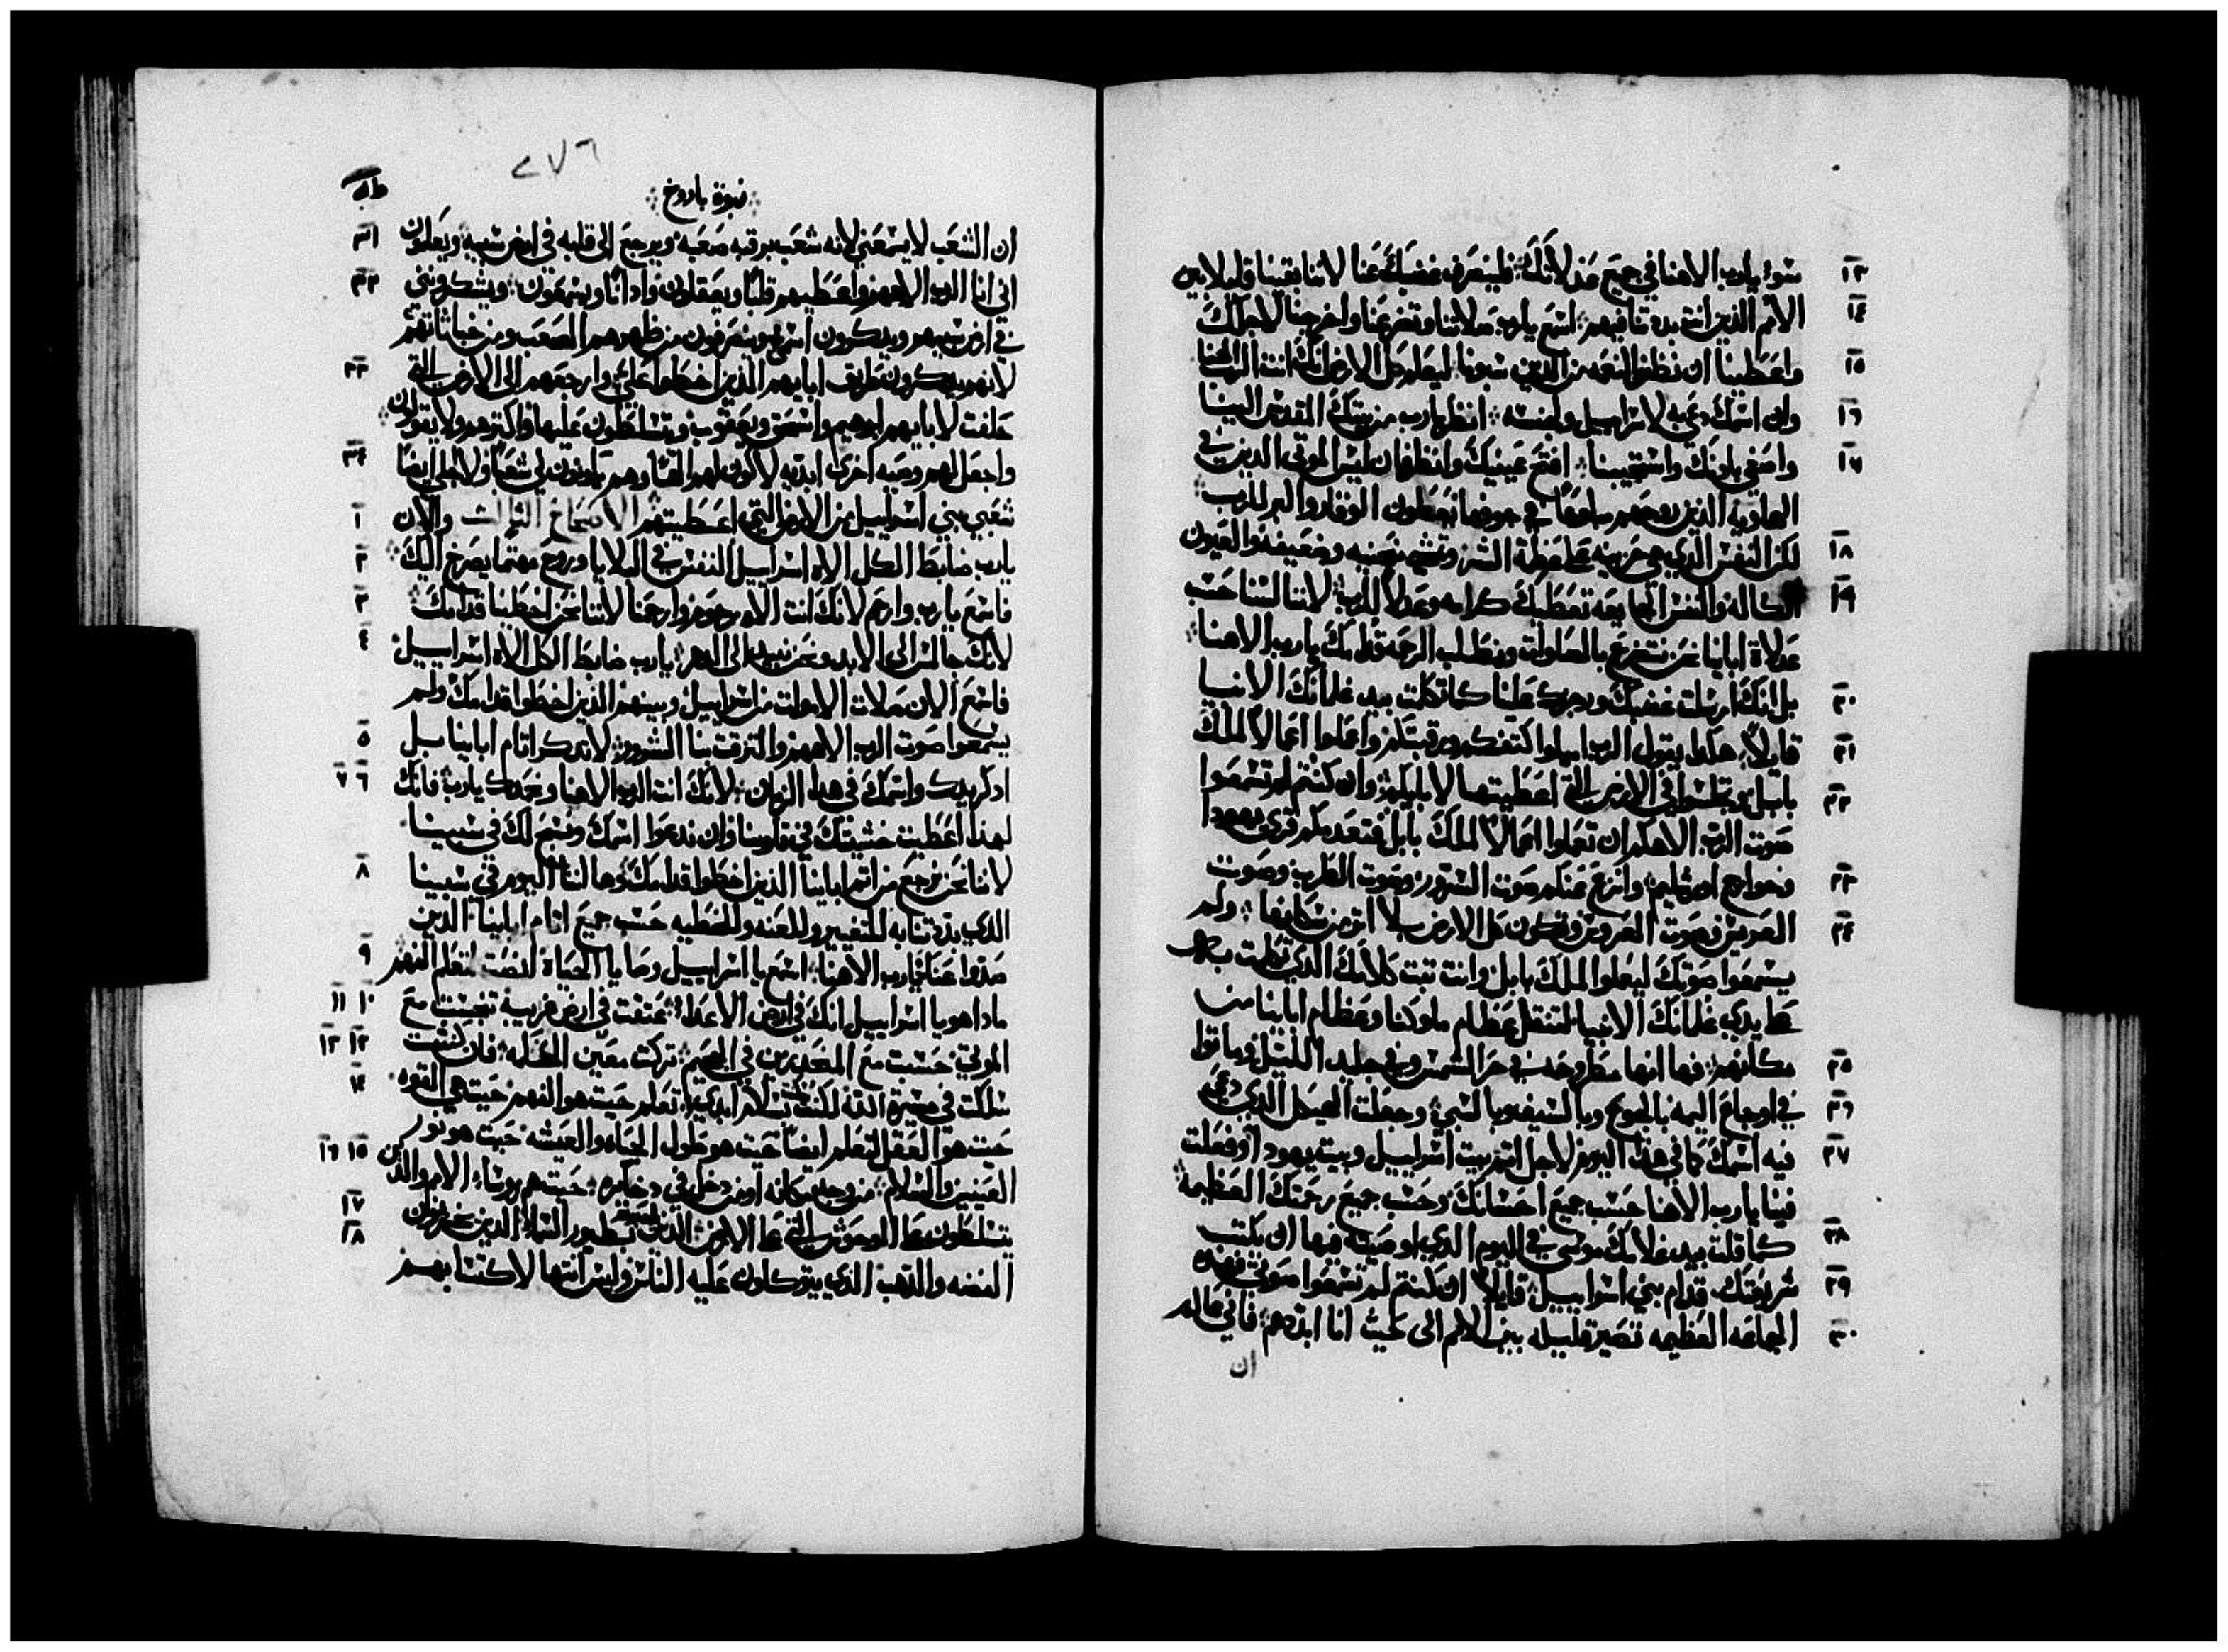 سوء يا رب الاهنا في جميع عدلاتك فلينصرف غضبك عنا لاننا بقينا قليلا بين
١٣
الامم الذين انت بددتنا فيهم اسمع يا رب صلاتنا وتضرعنا واخرجنا لاجلك
١٤
واعطينا ان نظفر النعمه من الذين سبونا ليعلم كل الارض انك انت الرب الهنا
١٥
وان اسمك دعي به لاسراييل ولجنسه انظر يا رب من بيتك المقدس الينا
١٦
واصغي باذنك واستجيبنا افتح عينيك وانظر فان ليس الموتى الذين في
١٧
الهاويه الذين روحهم ماخوذا في جوفها يعطون الوقار والبر للرب
لكن النفس الذي هي حزينه على عظمة الشر وتمشي منحنيه وضعيفه والعيون
١٨
الكاله والنفس الجايعه تعطيك كرامه وعدلا للرب لاننا لسنا حسب
١٩
عدلاة اباينا نحن نتضرع بالصلوات ونطلب الرحمه قدامك يا رب الاهنا
بل انك ارسلت غضبك ورجزك علينا كما تكلمت بيد غلمانك الانبيا
٢٠
قايلا هكذا يقول الرب اميلوا كتفكم ورقبتكم واعملوا اعمالا لملك
٢١
بابل وتجلسوا في الارض التي اعطيتها لاباييكم وان كنتم لم تسمعوا
٢٢
صوت الرب الاهكم ان تعملوا اعمالا لملك بابل فتعدمكم قرى يهودا
وخوارج اورشليم وانزع عنكم صوت السرور وصوت الطرب وصوت
٢٣
العريس وصوت العروس وتكون كل الارض بلا اثر من سكانها ولم
٢٤
يسمعوا صوتك ليعملوا لملك بابل وانت ثبت كلامك الذي تكلمت به
على يدي غلمانك الانبيا لتنقل عظام ملوكنا وعظام اباينا من
مكانهم فها انها مطروحه في حر الشمس وفي جليد الليل وماتوا
٢٥
في اوجاع اليمه بالجوع وبالسيف وبالسبي وجعلت الهيكل الذي دعي
٢٦
فيه اسمك كما في هذا اليوم لاجل اثم بيت اسراييل وبيت يهودا وفعلت
٢٧
فينا يا رب الاهنا حسب جميع احسانك وحسب جميع رحمتك العظيمه
كما قلت بيد غلامك موسى في اليوم الذي اوصيته فيها ان يكتب
٢٨
شريعتك قدام بني اسراييل قايلا ان كنتم لم تسمعوا صوتي فهذه
٢٩
الجماعه العظيمه تصير قليله بين الامم الى حيث انا ابددهم فاني عالم
٣٠
ان
٢٧٦
نبوة باروخ
ان الشعب لا يسمعني لانه شعب برقبه صعبه ويرجع الى قلبه في ارض سبيه ويعلمون
٣١
اني انا الرب الاههم واعطيهم قلبا ويعقلون واذانا ويسمعون ويشكرونني
٣٢
في ارض سبيهم ويذكرون اسمي وينصرفون من ظهرهم الصعب ومن خباثاتهم
لانهم يذكرون طريق ابايهم الذين اخطوا علي وارجعهم الى الارض التي
٣٣
حلفت لابايهم ابرهيم واسحق ويعقوب ويتسلطون عليها واكثرهم ولا يقولون
واجعل لهم وصيه اخرى ابديه لاكون لهم الها وهم يكونون لي شعبا ولا اجلي ايضا
٣٤
شعبي بني اسراييل من الارض التي اعطيتهم الاصحاح الثالث والان
١
يا رب ضابط الكل الاه اسراييل النفس في البلايا وروح مهتما يصرخ اليك
٢
فاسمع يا رب وارحم لانك انت الاه رحوم وارحمنا لاننا نحن اخطينا قدامك
٣
لانك جالس الى الابد ونحن نبيد الى الدهر يا رب ضابط الكل الاه اسراييل
٤
فاسمع الان صلاة الاموات من اسراييل وبينهم الذين اخطوا قدامك ولم
يسمعوا صوت الرب الاههم والتزقت بنا الشرور لا تذكر اثام اباينا بل
٥
اذكر يدك واسمك في هذا الزمان لانك انت الرب الاهنا ونحمدك يا رب فانك
٦ ٧
لهذا اعطيت خشيتك في قلوبنا وان ندعوا اسمك ونسبح لك في سبينا
لاننا نحن نرجع من اثم اباينا الذين اخطوا قدامك وها لنا اليوم في سبينا
٨
الذي بددتنا به للتغيير وللعنه وللخطيه حسب جميع اثام اباينا الذين
صدوا عنك يا رب الاهنا اسمع يا اسراييل وصايا الحياة انصت لتعلم الفهم
٩
ماذا هو يا اسراييل انك في ارض الاعدا عتقت في ارض غريبه تنجست مع
١٠ ١١
الموتى حسبت مع المنحدرين في الجحيم تركت معين الحكمه فان كنت
١٢ ١٣
سلكت في مسيرة الله لكنت بسلام ابدي تعلم حيث هو الفهم حيث هي القوه
١٤
حيث هو العقل لتعلم ايضا حيث هو طول الحياه والعيشه حيث هو نور
العينين والسلام من وجد مكانه او من دخل في دخايره حيث هم روساء الامم والذين
١٥ ١٦
يتسلطون على الوحوش التي على الارض الذين بطيور السماء الذين يخزنون
١٧
الفضه والذهب الذي يتوكلون عليه الناس وليس انتها لاكتسابهم
١٨